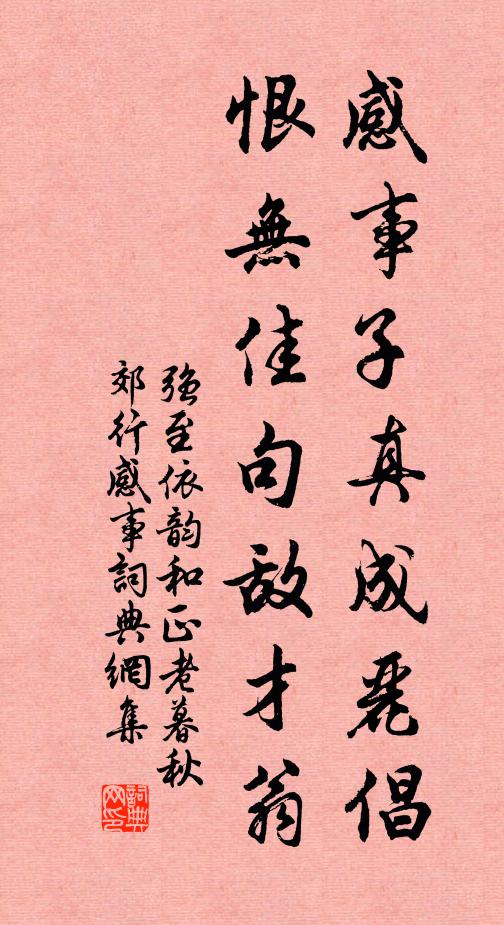 感事子真成麗倡
恨無佳句敌才翁
強至依韵和正老暮秋
郊行感事詞典網集
詞典网印